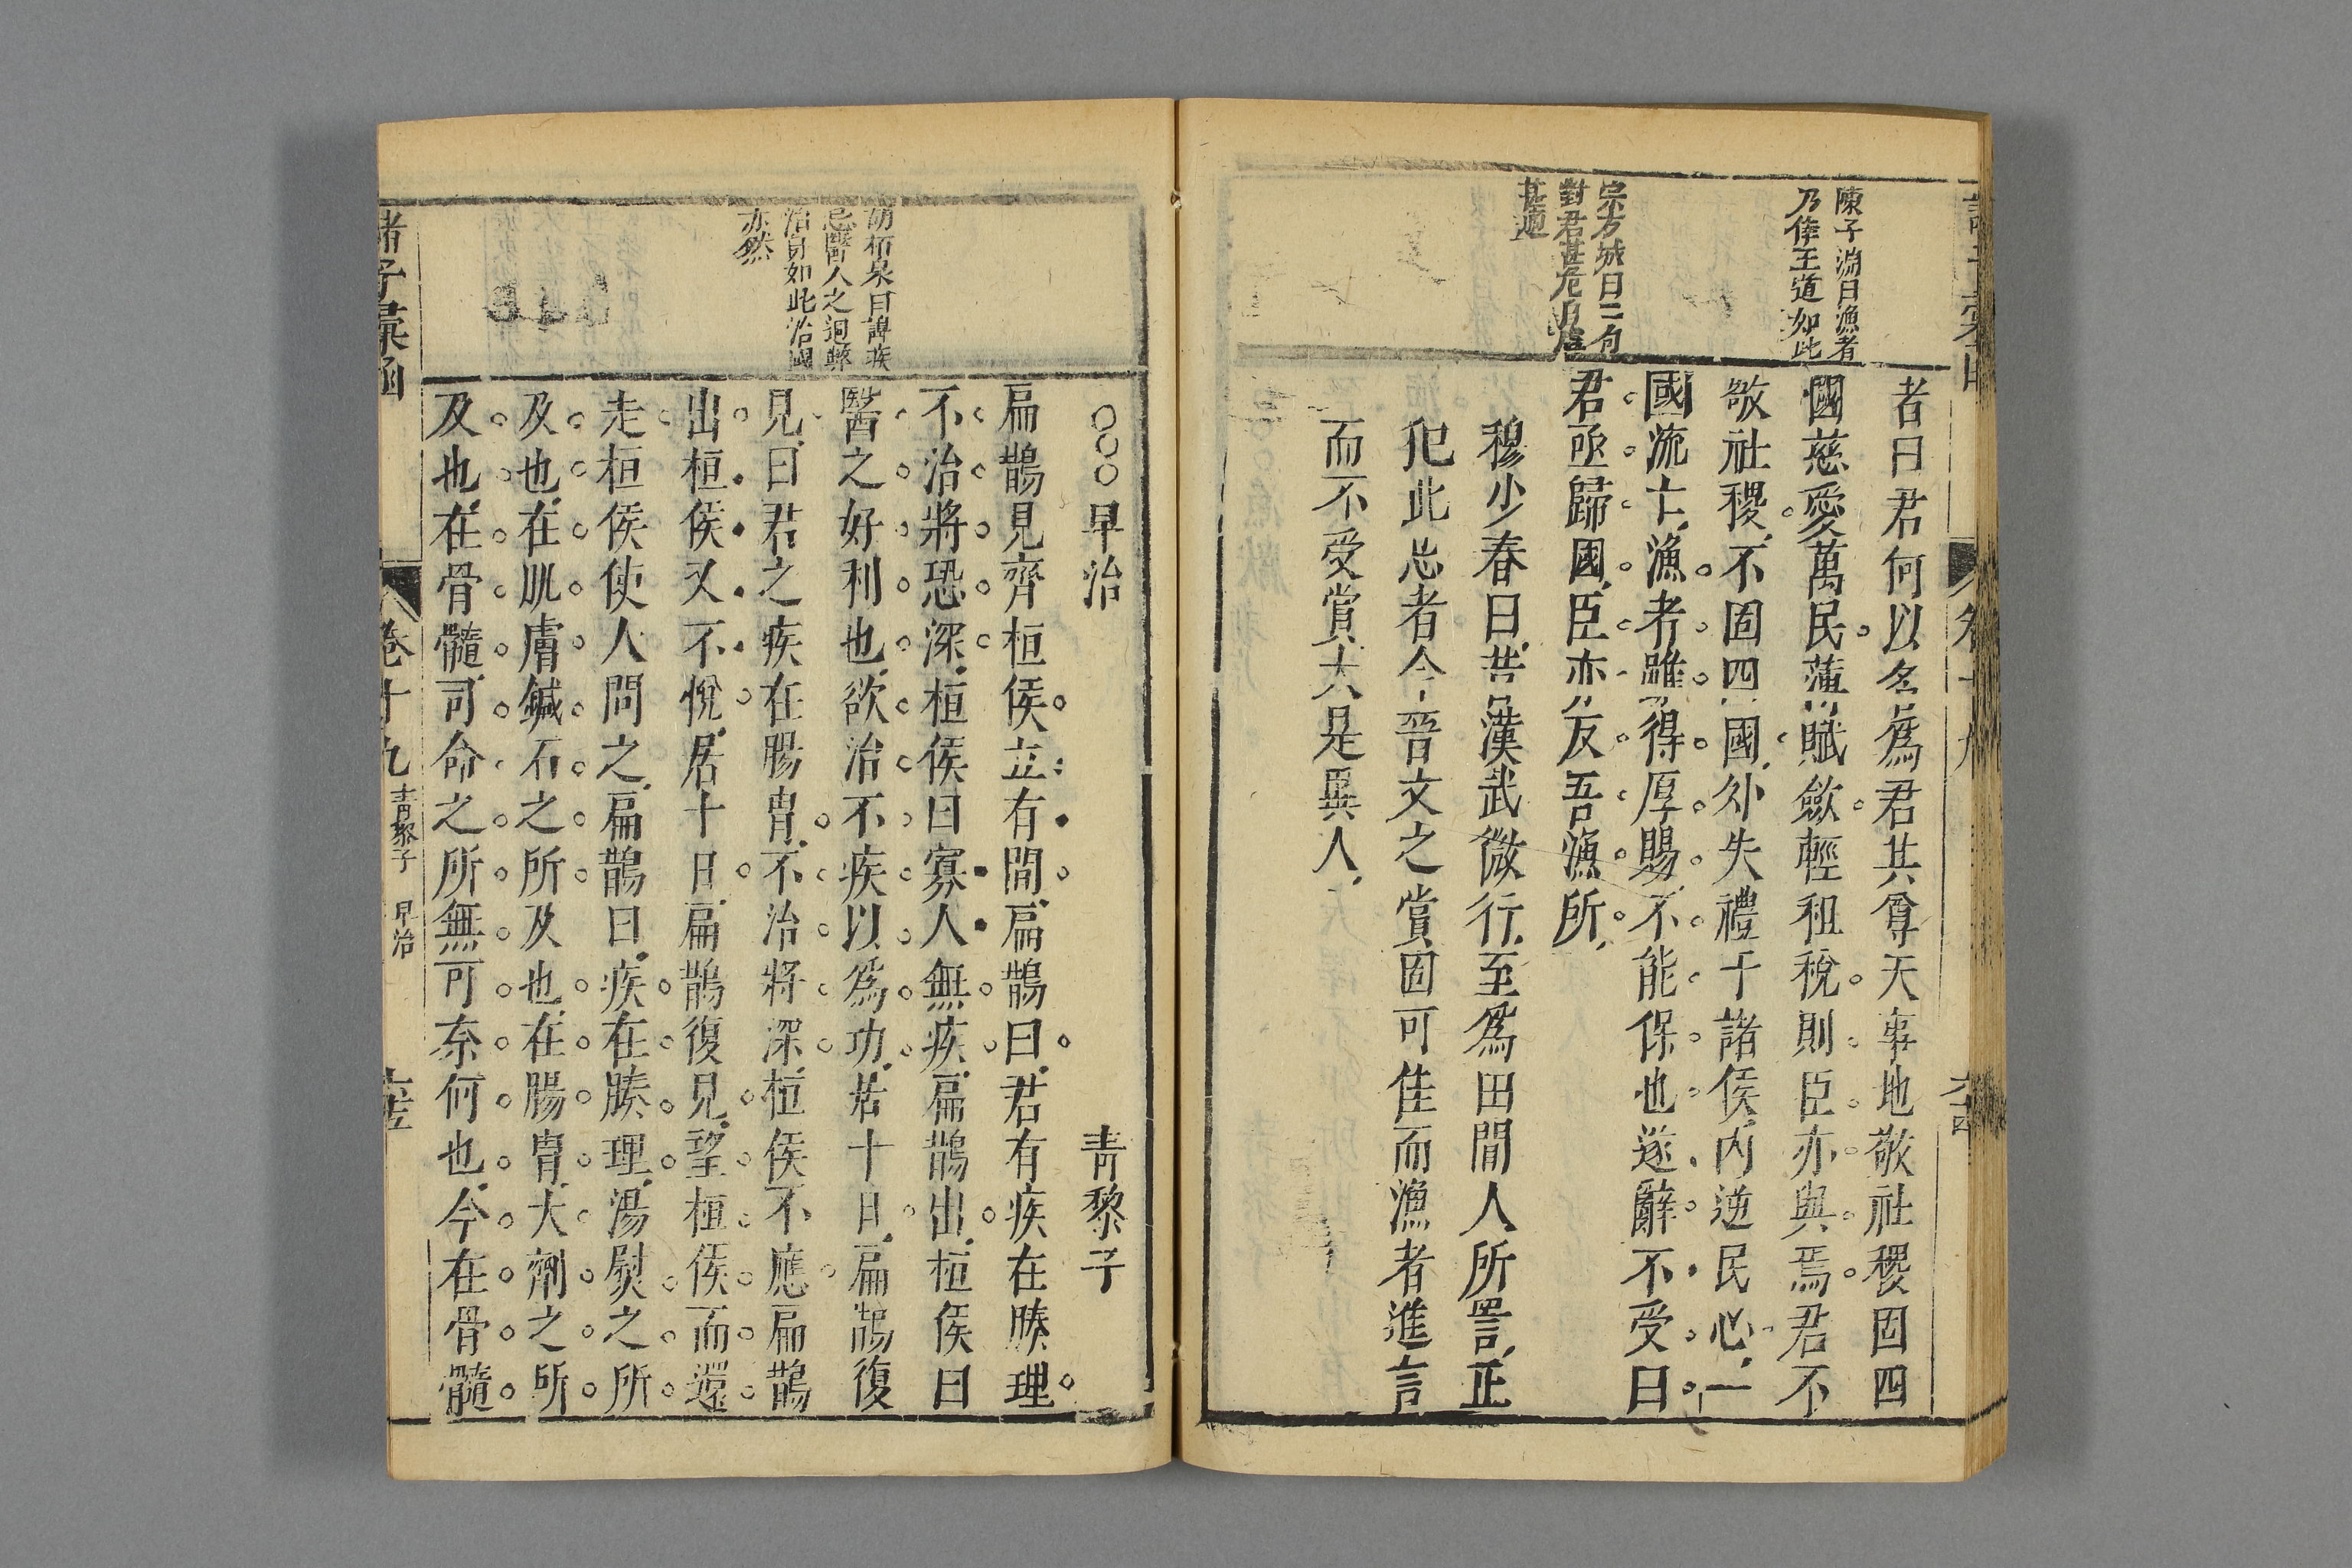 陳子淵曰漁者
乃倖王道如此
宗方城曰二句
對君甚危
甚適
者曰君何以名爲君其尊天事地敬社稷固四
國慈愛萬民薄賦斂輕租稅則臣亦與焉君不
敬社稷不固四國外失禮于諸侯内逆民心一
國流亡漁者雖得厚賜不能保也遂辭不受曰
君亟歸國臣亦反吾漁所
穆少春曰昔漢武微行至爲田間人所詈正
犯此忌者今晉文之賞固可佳而漁者進言
而不受賞大是異人
胡栢泉曰諱疾
忌醫人之迥弊
治身如此治國
亦然
○○○早治 青黎子
扁鵲見齊桓侯立有間扁鵲曰君有疾在腠理
不治將恐深桓侯曰寡人無疾扁鵲出桓侯曰
醫之好利也欲治不疾以爲功居十日扁鵲復
見曰君之疾在腸胃不治將深桓侯不應扁鵲
出桓侯又不悅居十日扁鵲復見望桓侯而還
走桓侯使人問之扁鵲曰疾在腠理湯熨之所
及也在肌膚鍼石之所及也在腸胃大劑之所
及也在骨髓司命之所無可奈何也今在骨髓
諸子彙函 卷十九 青黎子 早治